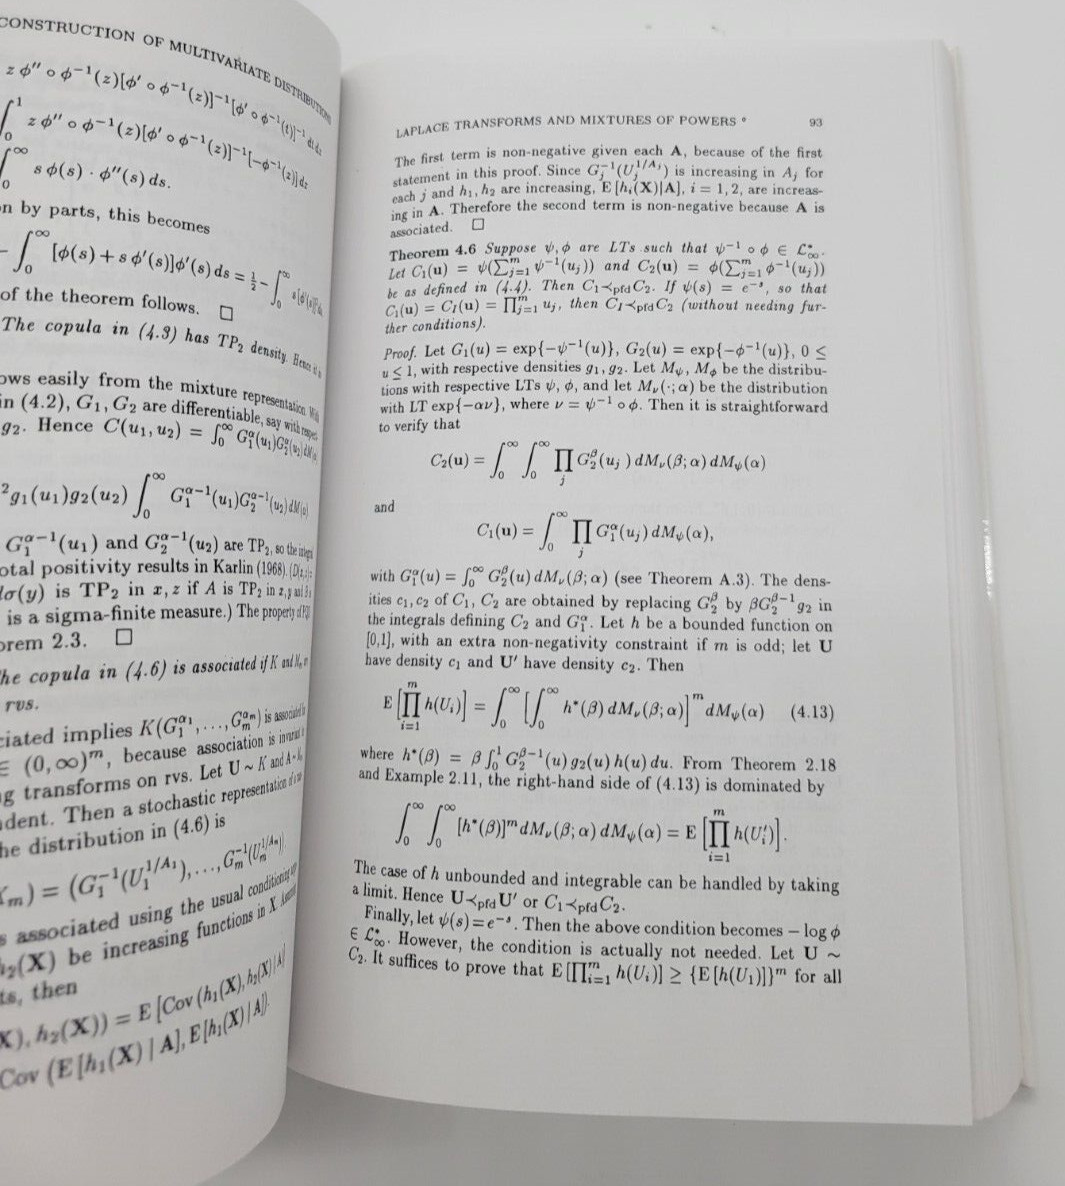 CONSTRUCTION OF MULTIVARIATE DISTRIBUTIONS
z ϕ″ ∘ ϕ⁻¹(z)[ϕ′ ∘ ϕ⁻¹(z)]⁻¹[ϕ′ ∘ ϕ⁻¹(t)]⁻¹ dt dz
∫₀¹ z ϕ″ ∘ ϕ⁻¹(z)[ϕ′ ∘ ϕ⁻¹(z)]⁻¹[−ϕ⁻¹(z)] dz
∫₀^∞ s ϕ(s) · ϕ″(s) ds.
n by parts, this becomes
− ∫₀^∞ [ϕ(s) + s ϕ′(s)]ϕ′(s) ds = ½ − ∫₀^∞ s[ϕ′(s)]² ds,
of the theorem follows. □
The copula in (4.3) has TP₂ density. Hence
ows easily from the mixture representation.
in (4.2), G₁, G₂ are differentiable, say with
g₂. Hence C(u₁, u₂) = ∫₀^∞ G₁^α(u₁)G₂^α(u₂) dM(α)
²g₁(u₁)g₂(u₂) ∫₀^∞ G₁^{α−1}(u₁)G₂^{α−1}(u₂) dM(α)
G₁^{α−1}(u₁) and G₂^{α−1}(u₂) are TP₂, so the
otal positivity results in Karlin (1968).
dσ(y) is TP₂ in x, z if A is TP₂ in x, y and
is a sigma-finite measure.) The property of
orem 2.3. □
he copula in (4.6) is associated if K and
rvs.
ciated implies K(G₁^{α₁}, . . . , G_m^{α_m}) is associated
∈ (0, ∞)^m, because association is invariant
g transforms on rvs. Let U ∼ K and A ∼
dent. Then a stochastic representation
he distribution in (4.6) is
X_m) = (G₁⁻¹(U₁^{1/A₁}), . . . , G_m⁻¹(U_m^{1/A_m})).
s associated using the usual conditioning
h₂(X) be increasing functions in X
ts, then
X), h₂(X)) = E [Cov (h₁(X), h₂(X)|A)]
Cov (E [h₁(X) | A], E [h₁(X) | A]).
LAPLACE TRANSFORMS AND MIXTURES OF POWERS * 93
The first term is non-negative given each A, because of the first
statement in this proof. Since G_j⁻¹(U_j^{1/A_j}) is increasing in A_j for
each j and h₁, h₂ are increasing, E [h_i(X)|A], i = 1, 2, are increas-
ing in A. Therefore the second term is non-negative because A is
associated. □
Theorem 4.6 Suppose ψ, ϕ are LTs such that ψ⁻¹ ∘ ϕ ∈ ℒ*_∞.
Let C₁(u) = ψ(∑_{j=1}^m ψ⁻¹(u_j)) and C₂(u) = ϕ(∑_{j=1}^m ϕ⁻¹(u_j))
be as defined in (4.4). Then C₁≺_pfd C₂. If ψ(s) = e^{−s}, so that
C₁(u) = C_I(u) = ∏_{j=1}^m u_j, then C_I≺_pfd C₂ (without needing fur-
ther conditions).
Proof. Let G₁(u) = exp{−ψ⁻¹(u)}, G₂(u) = exp{−ϕ⁻¹(u)}, 0 ≤
u ≤ 1, with respective densities g₁, g₂. Let M_ψ, M_ϕ be the distribu-
tions with respective LTs ψ, ϕ, and let M_ν(·; α) be the distribution
with LT exp{−αν}, where ν = ψ⁻¹ ∘ ϕ. Then it is straightforward
to verify that
C₂(u) = ∫₀^∞ ∫₀^∞ ∏_j G₂^β(u_j) dM_ν(β; α) dM_ψ(α)
and
C₁(u) = ∫₀^∞ ∏_j G₁^α(u_j) dM_ψ(α),
with G₁^α(u) = ∫₀^∞ G₂^β(u) dM_ν(β; α) (see Theorem A.3). The dens-
ities c₁, c₂ of C₁, C₂ are obtained by replacing G₂^β by βG₂^{β−1}g₂ in
the integrals defining C₂ and G₁^α. Let h be a bounded function on
[0,1], with an extra non-negativity constraint if m is odd; let U
have density c₁ and U′ have density c₂. Then
E [∏_{i=1}^m h(U_i)] = ∫₀^∞ [∫₀^∞ h*(β) dM_ν(β; α)]^m dM_ψ(α) (4.13)
where h*(β) = β ∫₀¹ G₂^{β−1}(u) g₂(u) h(u) du. From Theorem 2.18
and Example 2.11, the right-hand side of (4.13) is dominated by
∫₀^∞ ∫₀^∞ [h*(β)]^m dM_ν(β; α) dM_ψ(α) = E [∏_{i=1}^m h(U′_i)].
The case of h unbounded and integrable can be handled by taking
a limit. Hence U≺_pfd U′ or C₁≺_pfd C₂.
Finally, let ψ(s) = e^{−s}. Then the above condition becomes − log ϕ
∈ ℒ*_∞. However, the condition is actually not needed. Let U ∼
C₂. It suffices to prove that E [∏_{i=1}^m h(U_i)] ≥ {E [h(U₁)]}^m for all